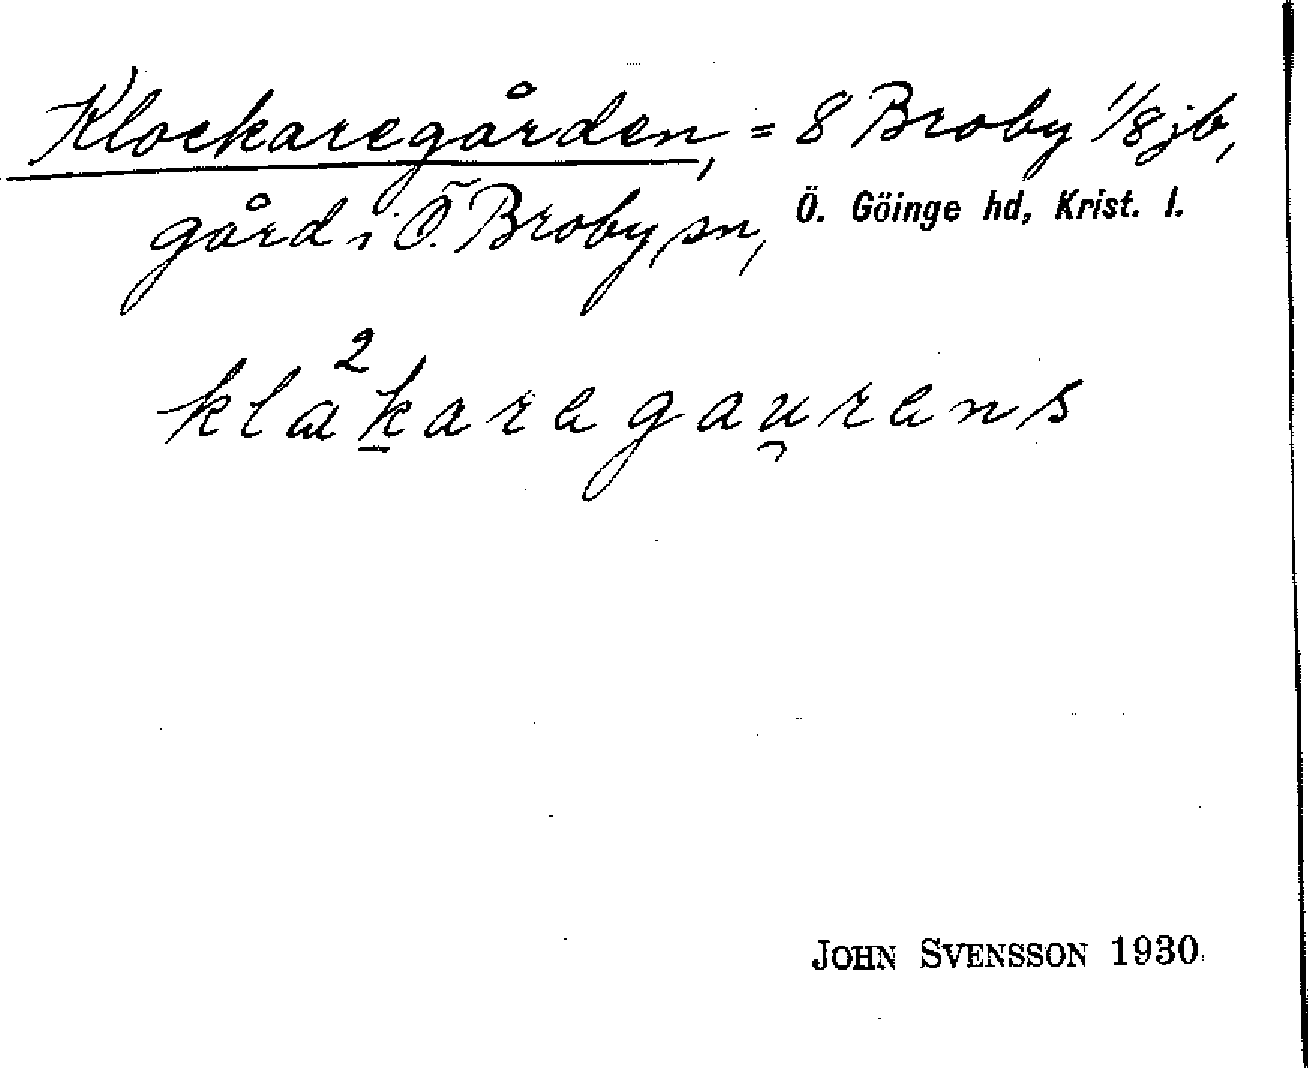 Klockaregården, = 8 Broby 1/8 jb,
gård i Ö. Broby sn, Ö. Göinge hd, Krist. l.
JOHN SVENSSON 1930